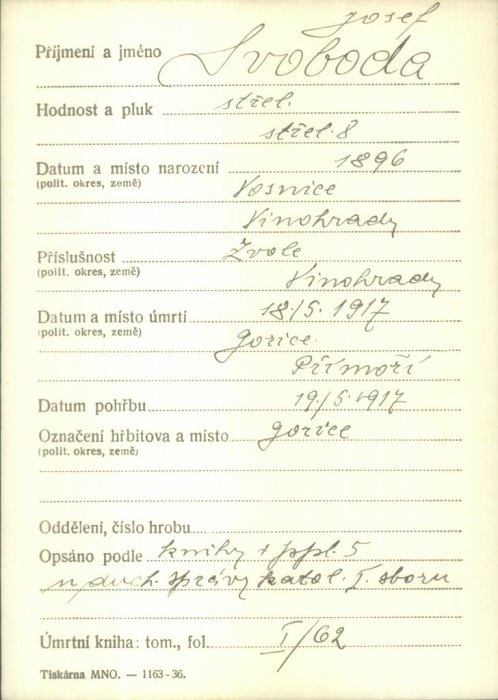 Josef
Příjmení a jméno Svoboda
Hodnost a pluk střel.
střel. 8
Datum a místo narození 1896
(polit. okres, země) Vosnice
Vinohrady
Příslušnost Zvole
(polit. okres, země) Vinohrady
Datum a místo úmrtí 18./5. 1917
(polit. okres, země) Gorice
Přímoří
Datum pohřbu 19./5. 1917
Označení hřbitova a místo Gorice
(polit. okres, země)
Oddělení, číslo hrobu
Opsáno podle knihy ppl. 5
duch. správy katol. I. sboru
Úmrtní kniha: tom., fol. I/62
Tiskárna MNO. — 1163-36.